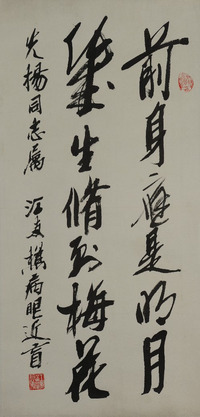 前身應是明月
幾生脩到梅花
同志属
江友樵病眼近盲